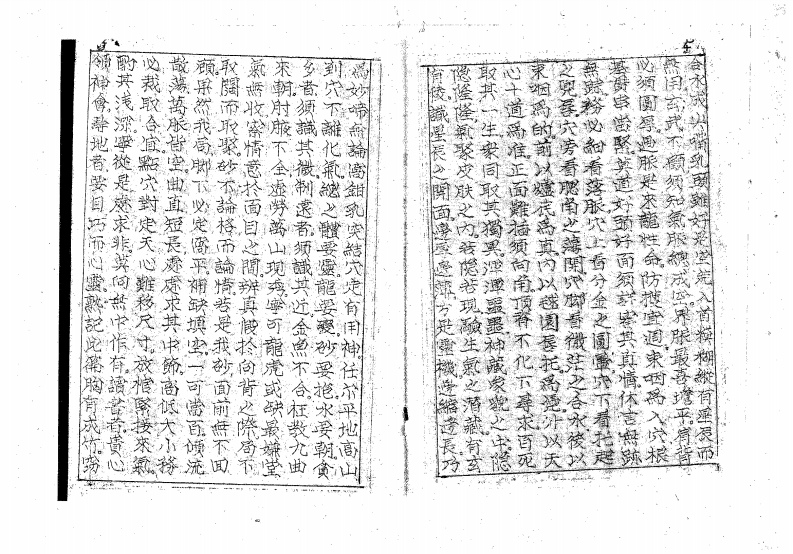 合水成山嘴乳頭雖好是空亮入首模糊縱有星辰而
無用玄武不顧須知氣脈總成空界脈最喜𫞩平有背
必須圓厚過脈是來龍性命防護宜週束咽為入穴根
基對宗當緊莫道好頭好面須詳察其真情休言無跡
無踪務必細看落脈穴上看分金之圓暈穴下看托起
之唇穴旁看腮角之薄開穴脚看微茫之合水後以
束咽為的前以遠氐為真內以毬圓唇托為憑外以天
心十道為准正面難擡須向南頂脊不化下尋求百死
取其一生衆同取其獨異渾渾噩噩神藏衆貌之中隱
隱隆隆氣聚皮肤之內若隱若現蔭生氣之潛藏有玄
有稜識星辰之開面層層靈機縮遠長乃
為妙啼無論窩鉗乳突結穴定有用神任尒平地高山
到穴不離化氣總之體要靈龍要變砂要抱水要朝貪
多者須識其微制遠者須識其近金魚不合枉教九曲
來朝肘腋不全虛勞萬山現瑞寧可龍虎或缺最嫌堂
氣無收察情意於面目之間辨真假於向背之際局下
取闊而取聚砂不論格而論情若是我砂面前無不回
顧果然我局脚下必定窩平補缺填空一可當百傾流
散蕩萬脈皆空曲直短長處處求其中節高低大小務
必裁取合宜點穴對定天心難移尺寸放棺緊接來氣
酌其淺深寧從是處求非莫向無中作有讀書者貴心
領神會尋地者要目巧而心靈熟記此篇胸有成竹